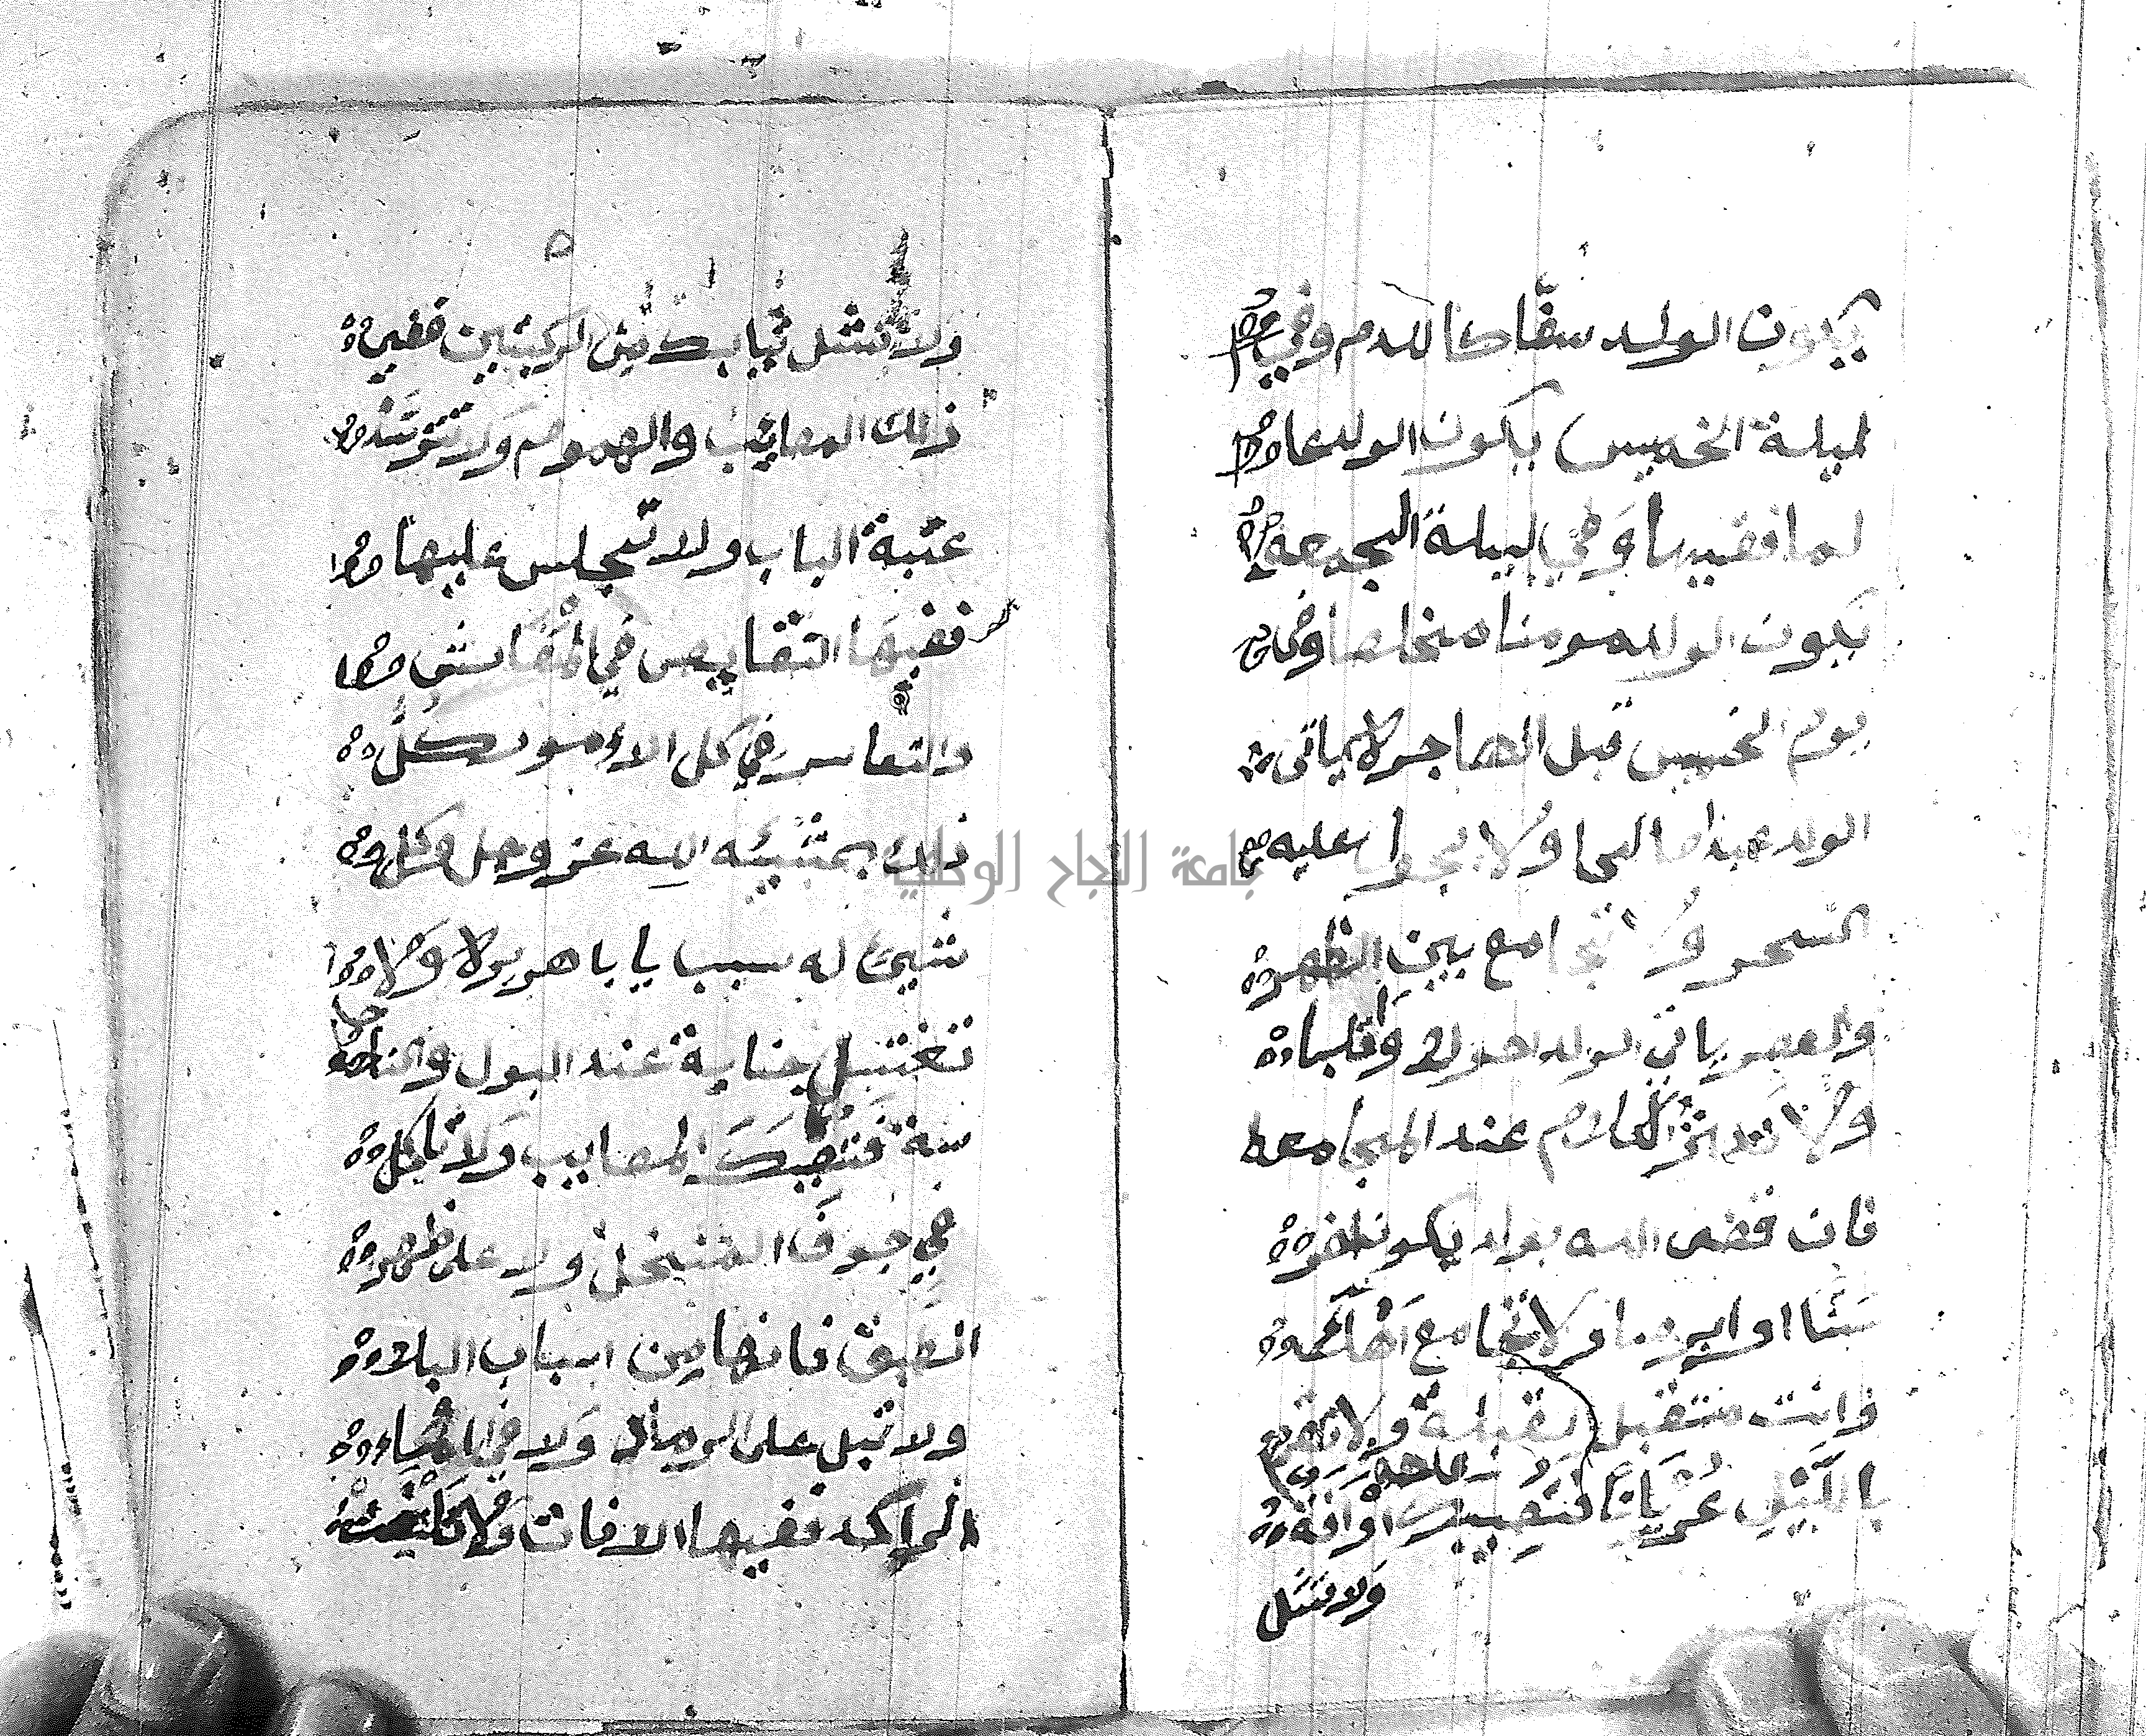 يكون الولد سفاكا للدم وفي
ليلة الخميس يكون الولد عا
لما فقيها وفي ليلة الجمعه
يكون الولد مومنا مخلصا وفي
يوم الخميس قبل الهاجرلا ياتي
الولد عبدا صالحا ولا يجوز عليه
السحر ولا تجامع بين الظهر
والعصر ياتي الولد احولا وقلبا
ولا تدخر الكلام عند المجامعه
فان قضى الله بولد يكون اخر
سًا او ابرصا ولا تجامع اهلك
وانت متقبل بقبلة ولا تقم
بالليل عريانا فتصيبك اوافه
ولا تشل
ولا تشل ثيابك بين الركبتين ففي
ذلك المصايب والهموم ولا تتوسد
عتبة الباب ولا تجلس عليها
ففيها التقايص في المقايش
والتعاسر في كل الامور كل
ذلك بمشيئه الله عز وجل وكل
شيئ له سبب يا با هريرلا ولا
تغتسل جنابة عند البول والنجا
سة فتصيبك المصايب ولا تاكل
في جوف المنخل ولا على ظهر
الطبق فانها من اسباب البلا
ولا تبل على الرماد ولا في الماء
الراكد ففيها الافات ولا
جامعة النجاح الوطنية